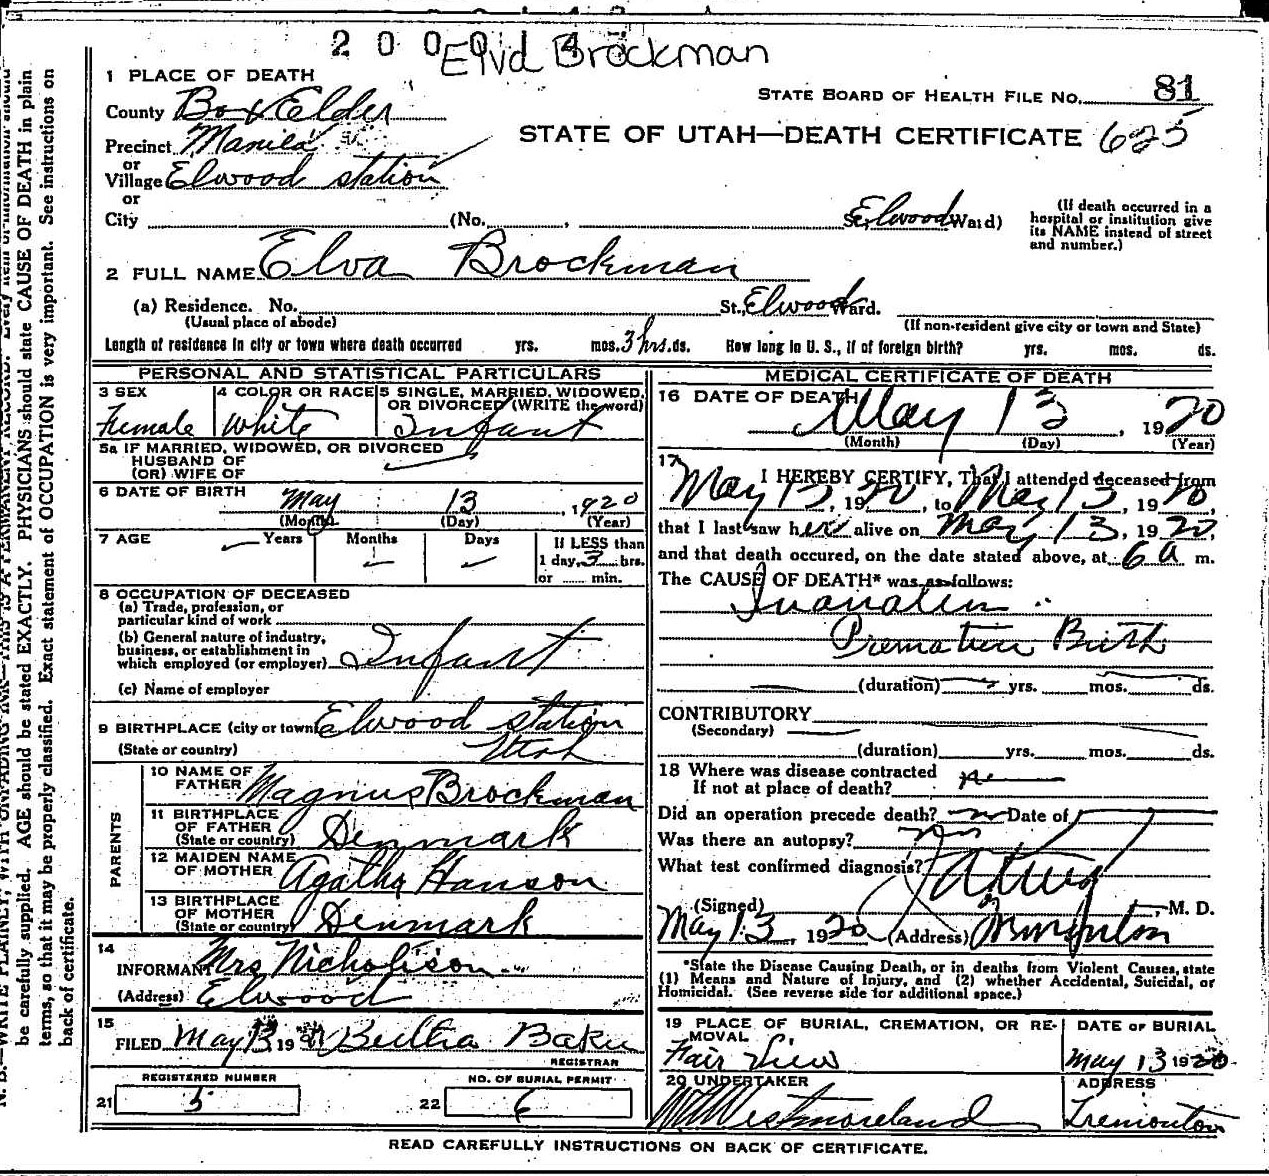 2 0 0 0 1 4
Elva Brockman
1 PLACE OF DEATH
County Box Elder
STATE BOARD OF HEALTH FILE NO. 81
Precinct Manila
STATE OF UTAH—DEATH CERTIFICATE 625
or
Village Elwood station
or
City (No. , St., Elwood Ward)
(If death occurred in a hospital or institution give its NAME instead of street and number.)
2 FULL NAME Elva Brockman
(a) Residence. No. St., Elwood Ward.
(Usual place of abode) (If non-resident give city or town and State)
Length of residence in city or town where death occurred yrs. mos. 3 hrs. ds. How long in U. S., if of foreign birth? yrs. mos. ds.
PERSONAL AND STATISTICAL PARTICULARS
3 SEX
Female
4 COLOR OR RACE
White
5 SINGLE, MARRIED, WIDOWED, OR DIVORCED (WRITE the word)
Infant
5a IF MARRIED, WIDOWED, OR DIVORCED
HUSBAND OF
(OR) WIFE OF
6 DATE OF BIRTH May 13, 1920
(Month) (Day) (Year)
7 AGE Years Months Days
If LESS than
1 day, 3 hrs.
or min.
8 OCCUPATION OF DECEASED
(a) Trade, profession, or
particular kind of work
(b) General nature of industry,
business, or establishment in
which employed (or employer) Infant
(c) Name of employer
9 BIRTHPLACE (city or town) Elwood station
(State or country) Utah
PARENTS
10 NAME OF
FATHER Magnus Brockman
11 BIRTHPLACE
OF FATHER
(State or country) Denmark
12 MAIDEN NAME
OF MOTHER Agatha Hanson
13 BIRTHPLACE
OF MOTHER
(State or country) Denmark
14
INFORMANT Mrs Nicholison
(Address) Elwood
15
FILED May 13 19 Bertha Baker
REGISTRAR
REGISTERED NUMBER
21 5
NO. OF BURIAL PERMIT
22 6
MEDICAL CERTIFICATE OF DEATH
16 DATE OF DEATH
May 13, 1920
(Month) (Day) (Year)
17
I HEREBY CERTIFY, That I attended deceased from
May 13, 1920, to May 13, 1920,
that I last saw her alive on May 13, 1920,
and that death occured, on the date stated above, at 6 a m.
The CAUSE OF DEATH* was as follows:
Premature Birth
(duration) yrs. mos. ds.
CONTRIBUTORY
(Secondary)
(duration) yrs. mos. ds.
18 Where was disease contracted
If not at place of death?
Did an operation precede death? Date of
Was there an autopsy?
What test confirmed diagnosis?
(Signed) , M. D.
May 13, 1920 (Address)
*State the Disease Causing Death, or in deaths from Violent Causes, state
(1) Means and Nature of Injury, and (2) whether Accidental, Suicidal, or
Homicidal. (See reverse side for additional space.)
19 PLACE OF BURIAL, CREMATION, OR REMOVAL
Fair View
DATE OF BURIAL
May 13 1920
20 UNDERTAKER
Westmoreland
ADDRESS
Tremonton
READ CAREFULLY INSTRUCTIONS ON BACK OF CERTIFICATE.
be carefully supplied. AGE should be stated EXACTLY. PHYSICIANS should state CAUSE OF DEATH in plain
terms, so that it may be properly classified. Exact statement of OCCUPATION is very important. See instructions on
back of certificate.